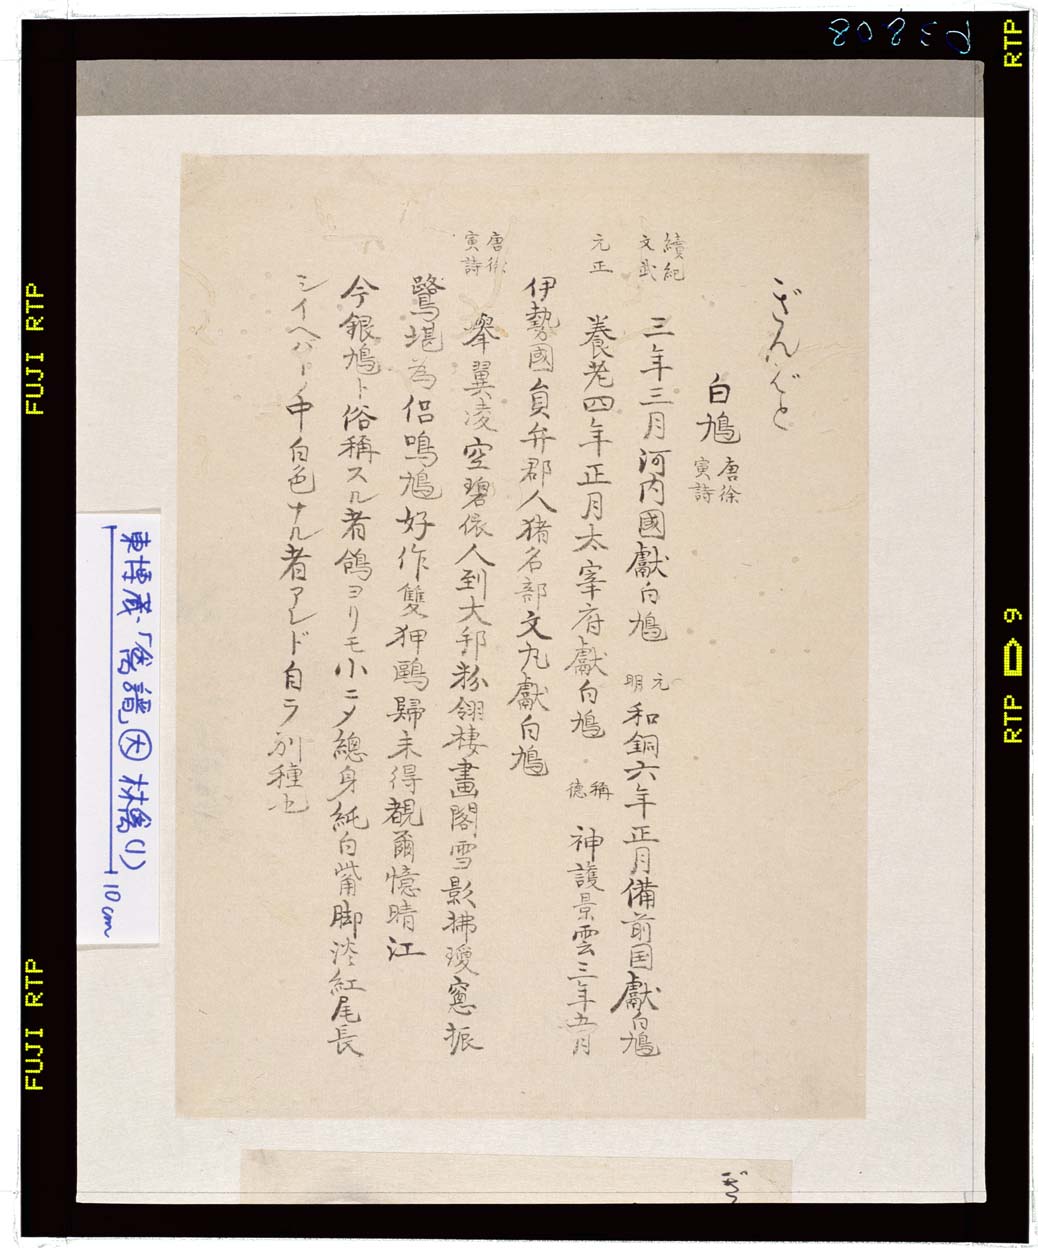 ぎんばと
白鳩 唐徐寅詩
續紀文武 三年三月河内國獻白鳩 元明 和銅六年正月備前国獻白鳩
元正 養老四年正月太宰府獻白鳩 稱徳 神護景雲三年五月
伊勢國員弁郡人猪名部文丸獻白鳩
唐徐寅詩 擧翼凌空碧依人到大邦粉翎棲畫閣雪影拂瓊窓振
鷺堪為侶鳴鳩好作雙狎鷗歸未得覩爾憶晴江
今銀鳩ト俗稱スル者鴿ヨリモ小ニメ總身純白觜脚淡紅尾長
シイヘバトノ中白色ナル者アレド自ラ別種也
ぎ
東博蔵「鳥譜 大 林禽(1)
10cm
P3208
FUJI RTP
FUJI RTP
RTP
RTP 9